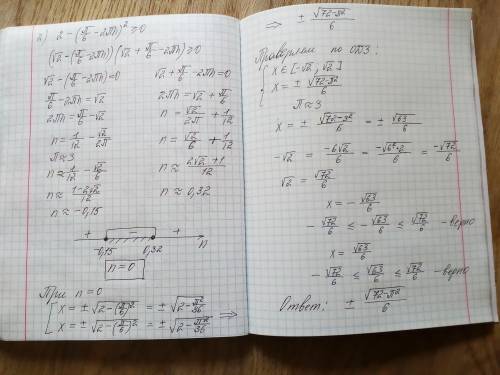 2) 2 - (π/6 - 2πn)² ≥ 0
(√2 - (π/6 - 2πn))(√2 + π/6 - 2πn) ≥ 0
√2 - (π/6 - 2πn) = 0
π/6 - 2πn = √2
2πn = π/6 - √2
n = 1/12 - √2/2π
π ≈ 3
n ≈ 1/12 - √2/6
n ≈ (1-2√2)/12
n ≈ -0,15
√2 + π/6 - 2πn = 0
2πn = √2 + π/6
n = √2/2π + 1/12
n = √2/6 + 1/12
n ≈ (2√2+1)/12
n ≈ 0,32
+ - +
-0,15 0,32 n
n = 0
При n = 0
[ x = ± √(2-(π/6)²) = ± √(2-π²/36)
x = ± √(2-(π/6)²) = ± √(2-π²/36) ⇒
⇒ ± √(72-π²)/6
Проверяем по ОДЗ:
{ x ∈ [-√2, √2]
x = ± √(72-π²)/6
π ≈ 3
x = ± √(72-π²)/6 = ± √63/6
-√2 = -6√2/6 = -√(6²·2)/6 = -√72/6
√2 = √72/6
x = - √63/6
- √72/6 ≤ - √63/6 ≤ √72/6 - верно
x = √63/6
- √72/6 ≤ √63/6 ≤ √72/6 - верно
Ответ: ± √(72-π²)/6